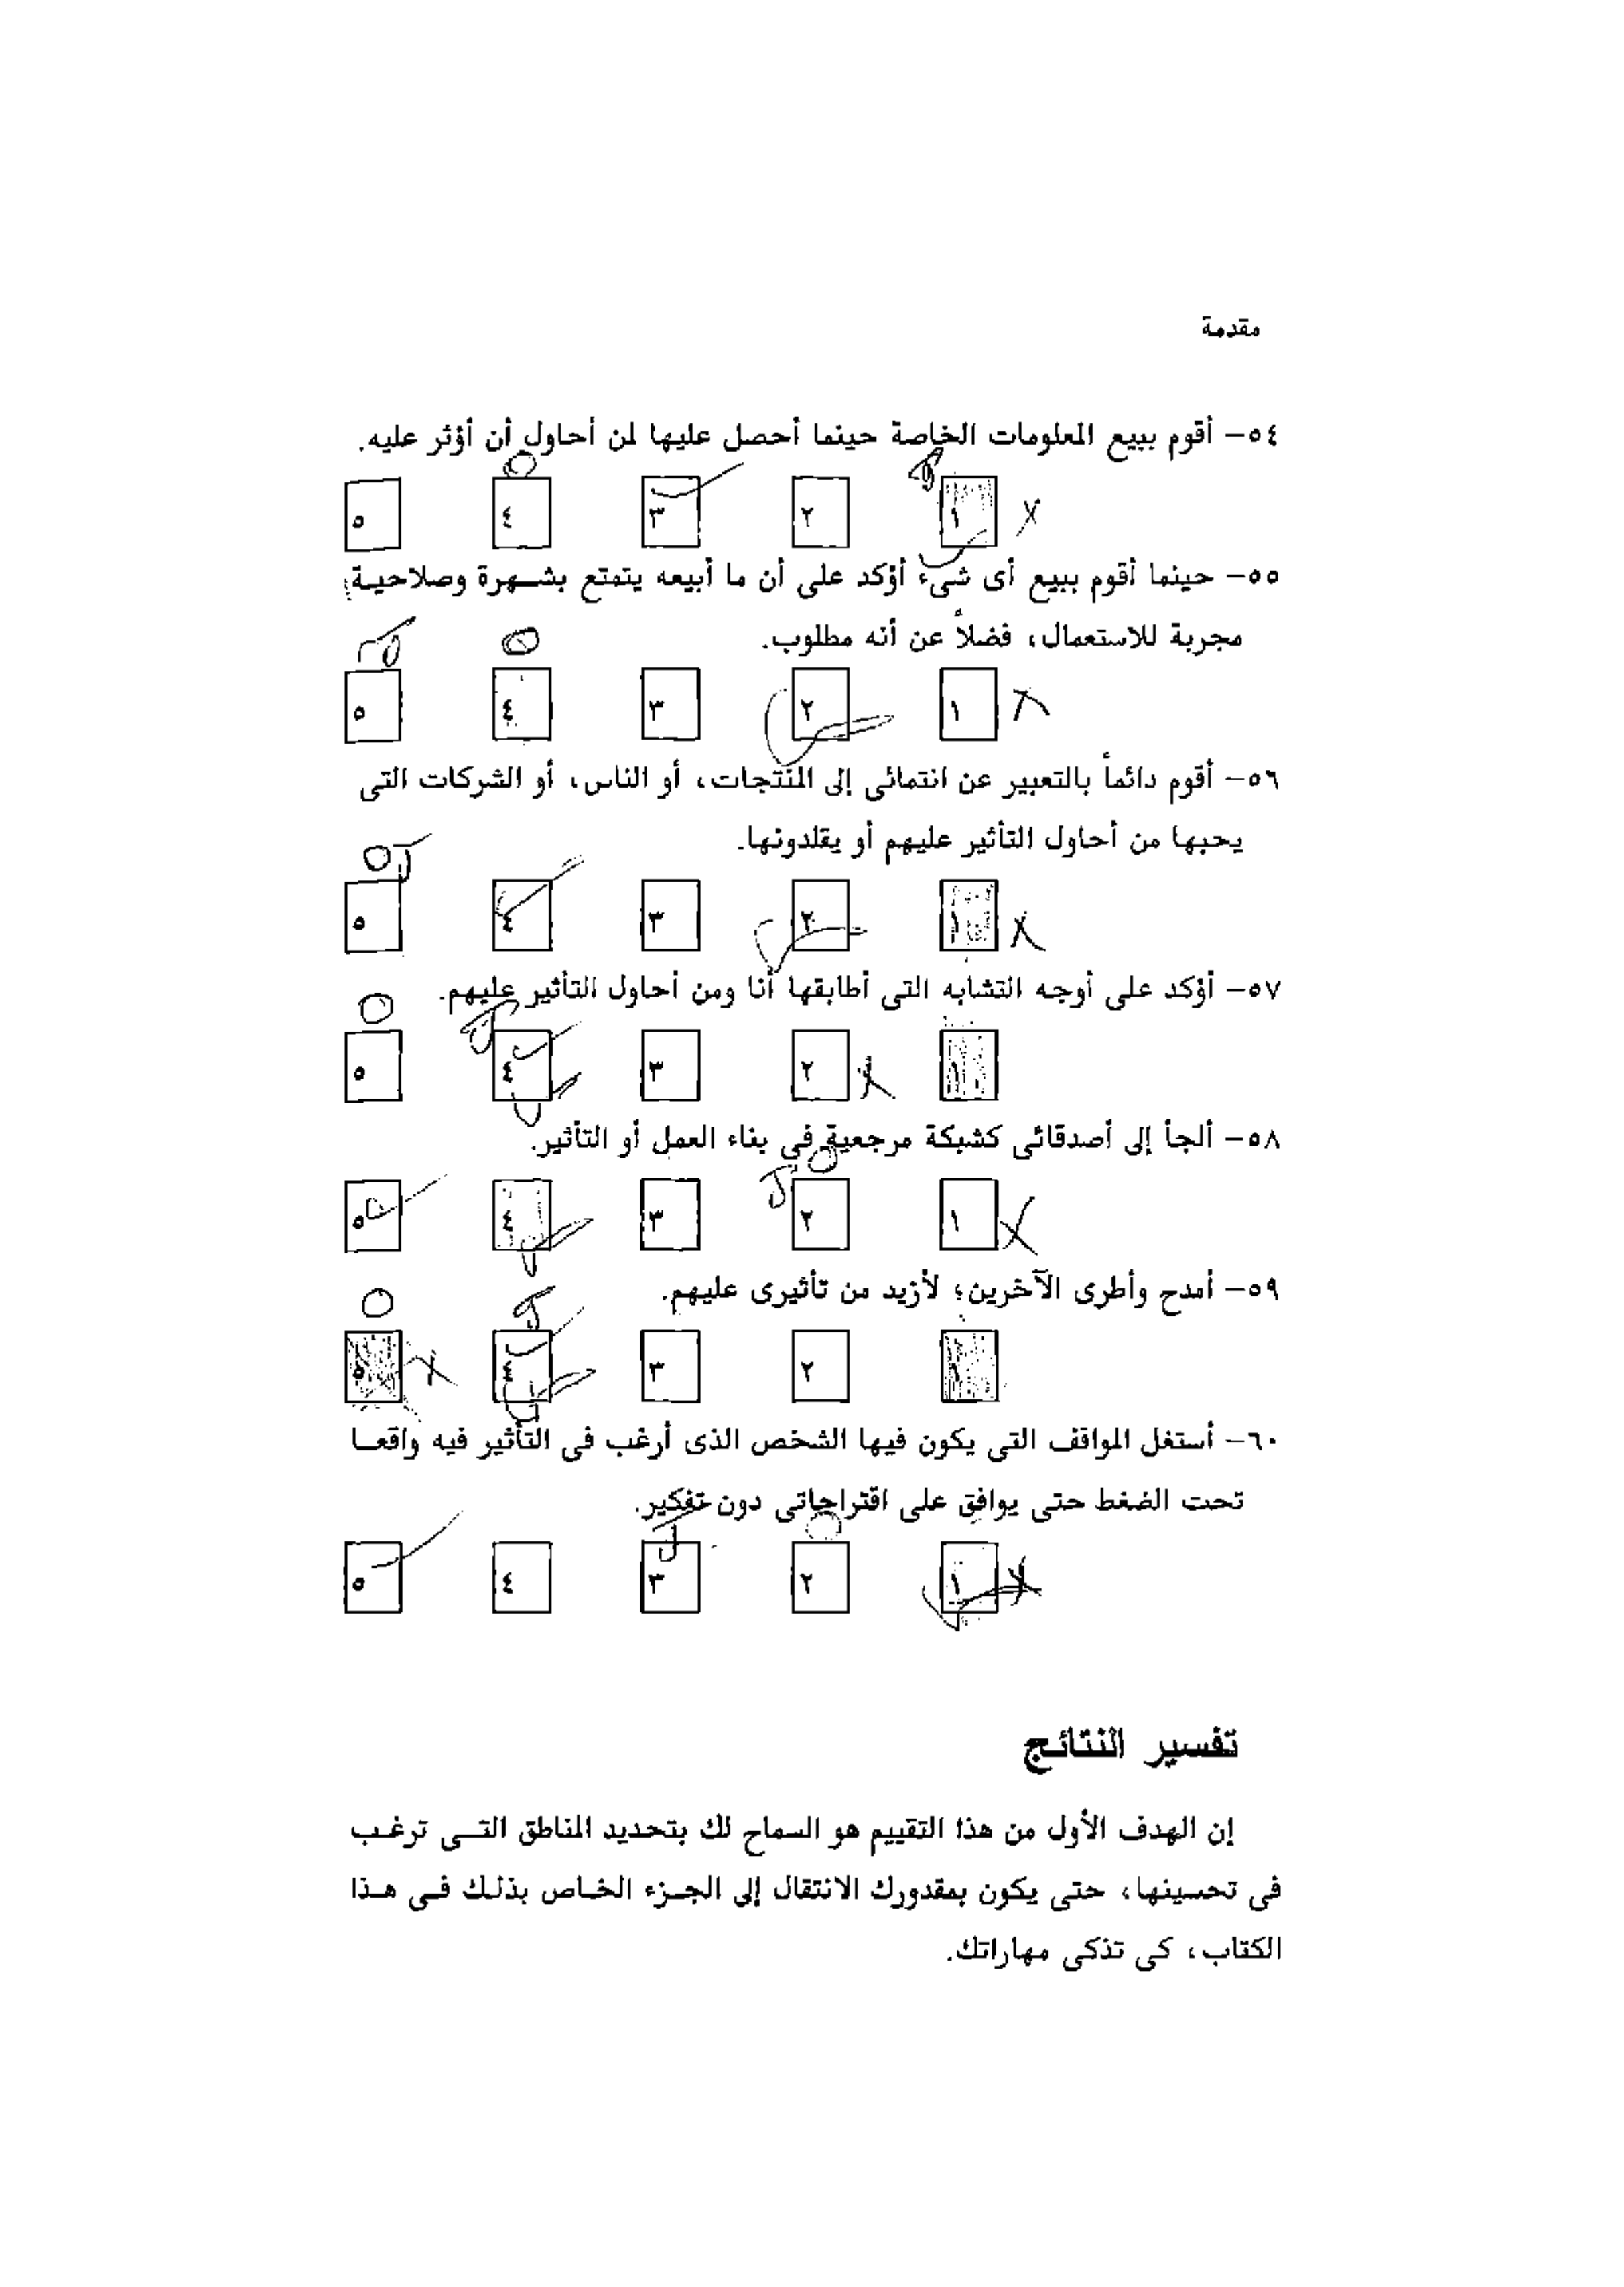 مقدمة
٥٤– أقوم ببيع المعلومات الخاصة حينما أحصل عليها لمن أحاول أن أؤثر عليه.
١ ٢ ٣ ٤ ٥
٥٥– حينما أقوم ببيع أى شىء أؤكد على أن ما أبيعه يتمتع بشهرة وصلاحية
مجربة للاستعمال، فضلاً عن أنه مطلوب.
١ ٢ ٣ ٤ ٥
٥٦– أقوم دائماً بالتعبير عن انتمائى إلى المنتجات، أو الناس، أو الشركات التى
يحبها من أحاول التأثير عليهم أو يقلدونها.
١ ٢ ٣ ٤ ٥
٥٧– أؤكد على أوجه التشابه التى أطابقها أنا ومن أحاول التأثير عليهم.
١ ٢ ٣ ٤ ٥
٥٨– ألجأ إلى أصدقائى كشبكة مرجعية فى بناء العمل أو التأثير.
١ ٢ ٣ ٤ ٥
٥٩– أمدح وأطرى الآخرين؛ لأزيد من تأثيرى عليهم.
١ ٢ ٣ ٤ ٥
٦٠– أستغل المواقف التى يكون فيها الشخص الذى أرغب فى التأثير فيه واقعا
تحت الضغط حتى يوافق على اقتراحاتى دون تفكير.
١ ٢ ٣ ٤ ٥
تفسير النتائج
إن الهدف الأول من هذا التقييم هو السماح لك بتحديد المناطق التى ترغب
فى تحسينها، حتى يكون بمقدورك الانتقال إلى الجزء الخاص بذلك فى هذا
الكتاب، كى تذكى مهاراتك.